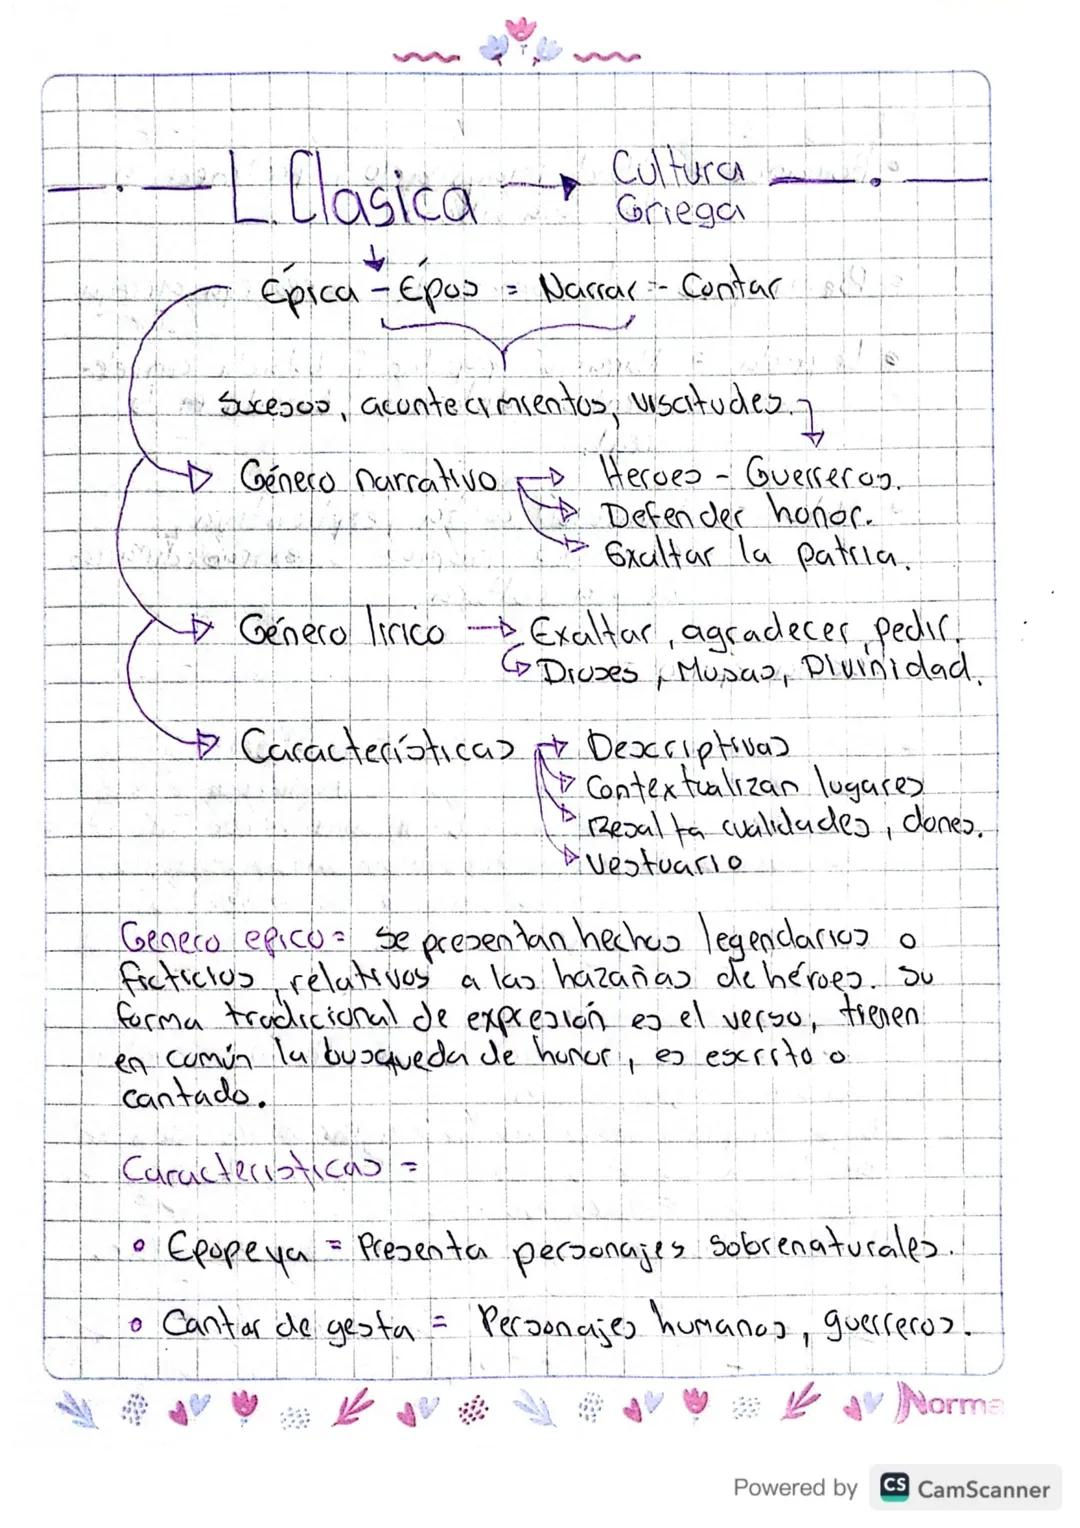 L. Clasica → Cultura
Griega
Épica - Épos = Narrar - Contar
sucesos, acontecimientos, viscitudes.
Género narrativo → Heroes - Guerreros.
Defender honor.
Exaltar la patria.
Género lirico → Exaltar, agradecer, pedir.
Dioses, Musas, Divinidad.
Características → Descriptivas
Contextualizan lugares
Resalta cualidades, dones.
Vestuario
Genero epico = Se presentan hechos legendarios o
ficticios, relativos a las hazañas de héroes. Su
forma tradicional de expresión es el verso, tienen
en común la busqueda de honor, es escrito o
cantado.
Caracteristicas =
Epopeya = Presenta personajes sobrenaturales.
Cantar de gesta = Personajes humanos, guerreros.
Norma
Powered by CS CamScanner